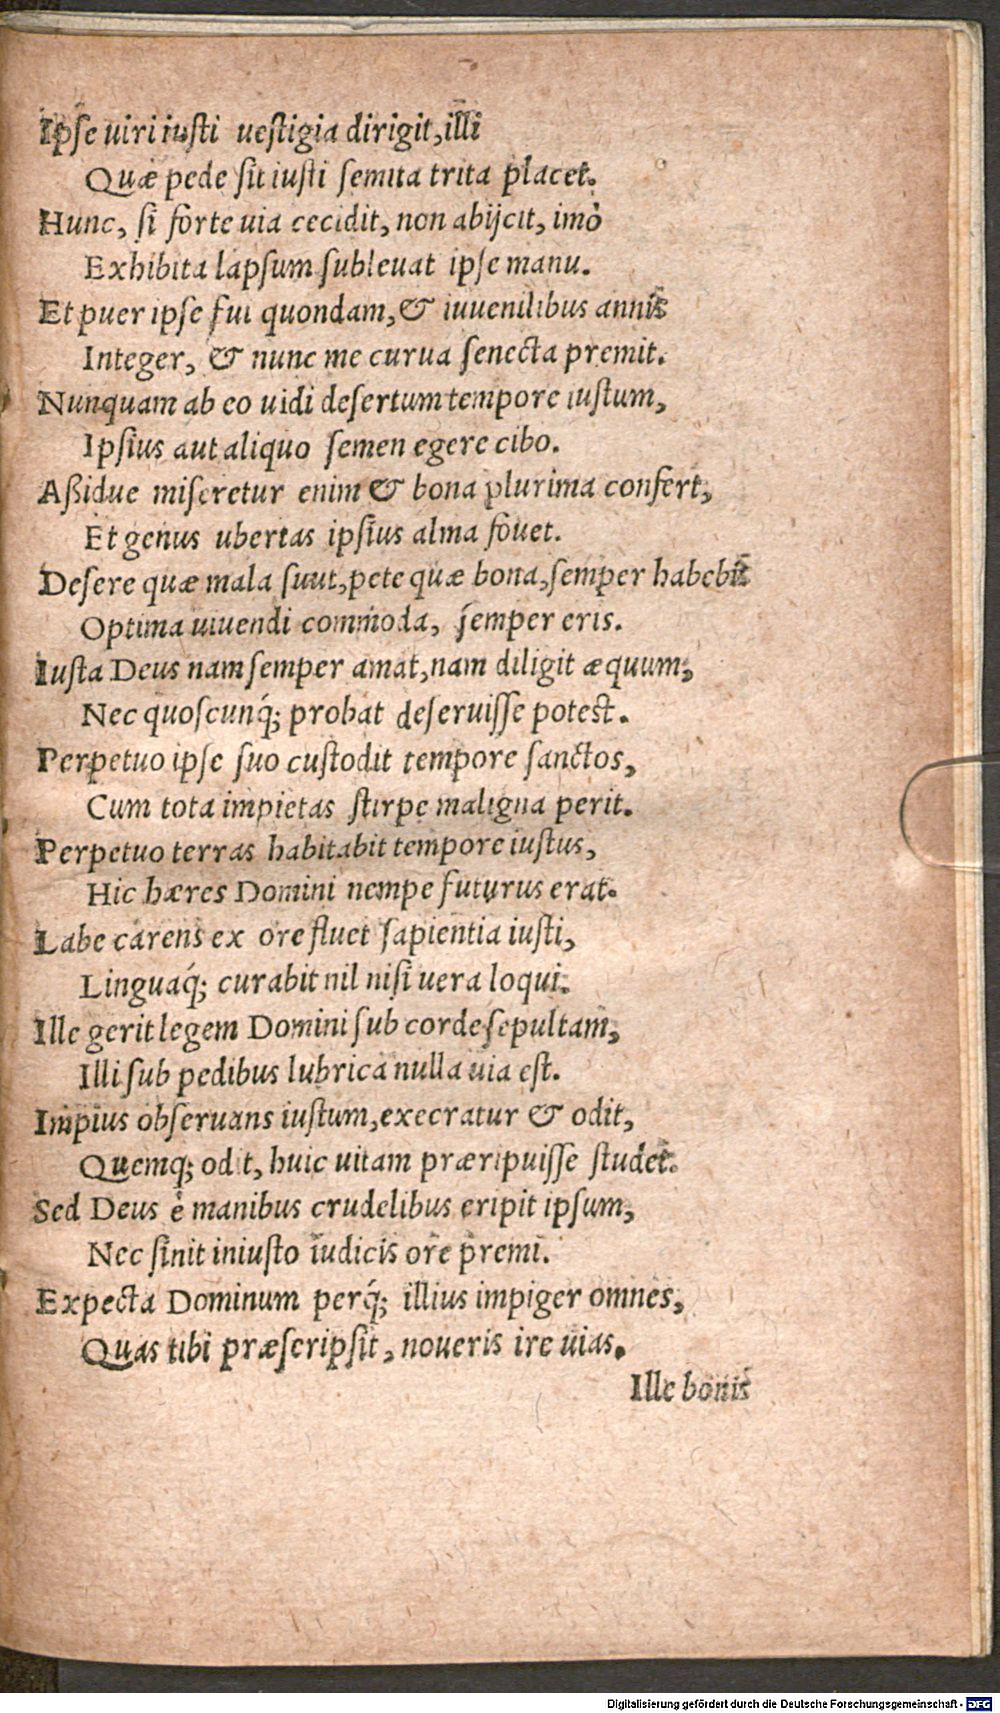 Ipſe uiri iuſti ueſtigia dirigit, illi
Quæ pede ſit iuſti ſemita trita placet.
Hunc, ſi forte uia cecidit, non abijcit, imò
Exhibita lapſum ſubleuat ipſe manu.
Et puer ipſe fui quondam, & iuuenilibus annis
Integer, & nunc me curua ſenecta premit.
Nunquam ab eo uidi deſertum tempore iuſtum,
Ipſius aut aliquo ſemen egere cibo.
Aßidue miſeretur enim & bona plurima confert,
Et genus ubertas ipſius alma fouet.
Deſere quæ mala ſunt, pete quæ bona, ſemper habebis
Optima uiuendi commoda, ſemper eris.
Iuſta Deus nam ſemper amat, nam diligit æquum,
Nec quoſcunq́; probat deſeruiſſe poteſt.
Perpetuo ipſe ſuo cuſtodit tempore ſanctos,
Cum tota impietas ſtirpe maligna perit.
Perpetuo terras habitabit tempore iuſtus,
Hic hæres Domini nempe futurus erat.
Labe carens ex ore fluet ſapientia iuſti,
Linguaq́; curabit nil niſi uera loqui.
Ille gerit legem Domini ſub corde ſepultam,
Illi ſub pedibus lubrica nulla uia eſt.
Impius obſeruans iuſtum, execratur & odit,
Quemq; odit, huic uitam præripuiſſe ſtudet.
Sed Deus è manibus crudelibus eripit ipſum,
Nec ſinit iniuſto iudicis ore premi.
Expecta Dominum perq́; illius impiger omnes,
Quas tibi præſcripſit, noueris ire uias.
Ille bonis
Digitalisierung gefördert durch die Deutsche Forschungsgemeinschaft - DFG